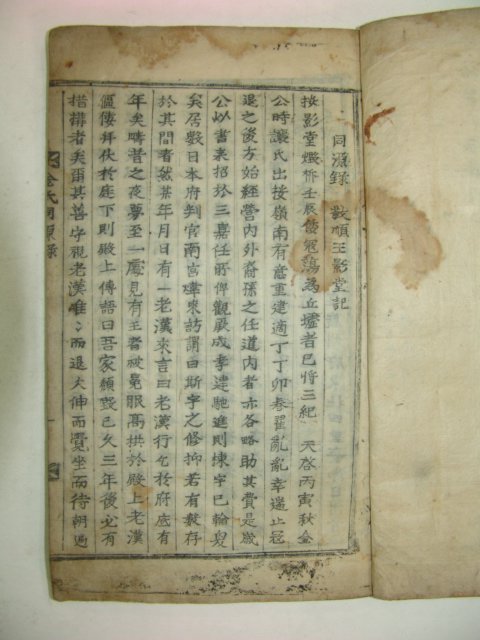 同源錄　敬順王影堂記
按影堂燬於壬辰倭寇蕩為丘墟者已將三紀　天啓丙寅秋金
公時讓氏出按嶺南有意重建適丁丁卯春翟亂亂幸遄止冦
退之後方始經營內外裔孫之任道內者亦各略助其費是歲
公以書来招於三嘉任所俾觀厥成孝建馳進則棟宇已輪奐
矣居數日本府判官南宮㙔來訪謂曰斯宇之修抑若有數存
於其間者然某年月日有一老漢来言曰老漢行乞於府底有
年矣疇昔之夜夢至一處見有王者被冕服高拱於殿上老漢
傴僂拜伏於庭下則殿上傳語曰吾家頹毀已久三年後必有
措搆者矣爾其善守視老漢唯唯而退欠伸而覺坐而待朝過
金氏同源錄